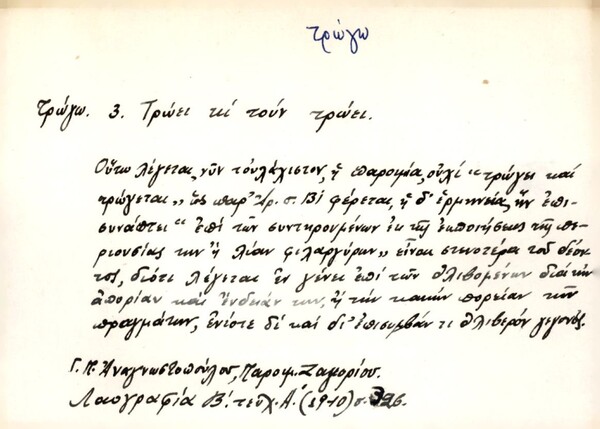 τρώγω
Τρώγω. 3. Τρώει κὶ τοὺν τρώει.
Οὕτω λέγεται νῦν τοὐλάχιστον ἡ παροιμία, οὐχὶ "τρώγει καὶ
τρώγεται" ὡς παρ' Ἀρ. σ. Β! φέρεται, ἡ δ' ἑρμηνεία, ἣν ἐπι-
συνάπτει "ἐπὶ τῶν συντηρουμένων ἐκ τῆς ἐκποιήσεως τῆς πε-
ριουσίας των ἢ λίαν φιλαργύρων" εἶναι στενοτέρα τοῦ δέον-
τος, διότι λέγεται ἐν γένει ἐπὶ τῶν θλιβομένων διὰ τὴν
ἀπορίαν καὶ ἔνδειάν των, ἢ τὴν κακὴν πορείαν τῶν
πραγμάτων, ἐνίοτε δὲ καὶ δι' ἐπισυμβάν τι θλιβερὸν γεγονός.
Γ. Π. Ἀναγνωστοπούλου, Παροιμ. Ζαγορίου.
Λαογραφία Β! τεῦχ. Α! (1910) σ. 326.